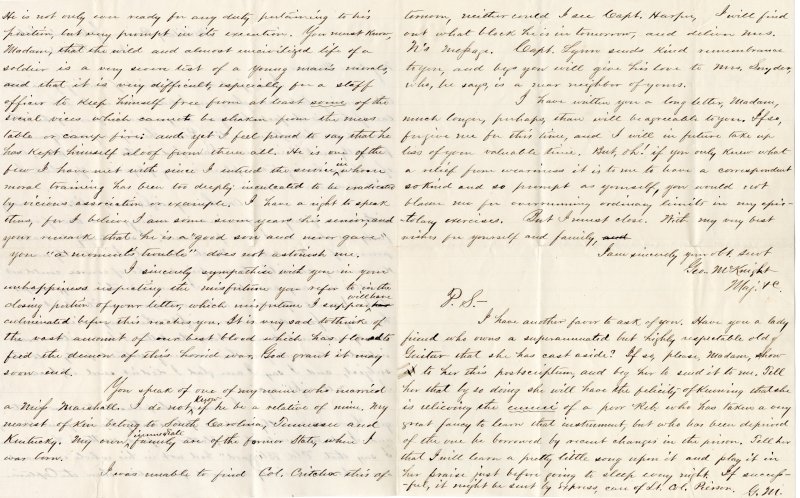 He is not only ever ready for any duty pertaining to his
position, but very prompt in its execution. You must know,
Madam, that the wild and almost uncivilized life of a
soldier is a very severe test of a young man's morals,
and that it is very difficult, especially for a staff
officer to keep himself free from at least some of the
social vices which cannot be shaken from the mess
table or camp fire: and yet I feel proud to say that he
has kept himself aloof from them all. He is one of the
few I have met with since I entered the service, in whom
moral training has been too deeply inculcated to be eradicated
by vicious association or example. I have a right to speak
thus, for I believe I am some seven years his senior, and
your remark that he is a "good son and never gave
you "a moment's trouble" does not astonish me.
I sincerely sympathize with you in your
unhappiness respecting the misfortune you refer to in the
closing portion of your letter, which misfortune I suppose will have
culminated before this reaches you. It is very sad to think of
the vast amount of our best blood which has flowed to
feed the demon of this horrid war. God grant it may
soon end.
You speak of one of my name who married
a Miss Marshall. I do not know if he be a relative of mine. My
nearest of kin belong to South Carolina, Tennessee and
Kentucky. My own immediate family are of the former State, where I
was born.
I was unable to find Col. Critcher this af-
ternoon, neither could I see Capt. Harper, I will find
out what block he is in tomorrow, and deliver Mrs.
N's message. Capt. Lynn sends kind remembrance
to you, and begs you will give his love to Mrs. Snyder,
who, he says, is a near neighbor of yours.
I have written you a long letter, Madam,
much longer, perhaps, than will be agreeable to you. If so,
forgive me for this time, and I will in future take up
less of your valuable time. But, oh! if you only knew what
a relief from weariness it is to me to have a correspondent
so kind and so prompt as yourself, you would not
blame me for overrunning ordinary limits in my epis-
tolary exercises. But I must close. With my very best
wishes for yourself and family,
I am sincerely your obt. servt
Geo. McKnight
Maj. &c
P. S.-
I have another favor to ask of you. Have you a lady
friend who owns a superannuated but highly respectable old
Guitar that she has cast aside? If so, please, Madam, show
to her this postscription, and beg her to send it to me. Tell
her that by so doing she will have the felicity of knowing that she
is relieving the ennui of a poor Reb, who has taken a very
great fancy to learn that instrument, but who has been deprived
of the one he borrowed by recent changes in the prison. Tell her
that I will learn a pretty little song upon it and play it in
her praise just before going to sleep every night. If success-
ful, it might be sent by express, care of Lt. Col. Pierson.
G. M.